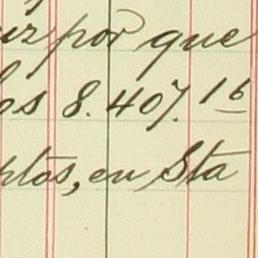 por que
8.407.16
ptos, en Sta